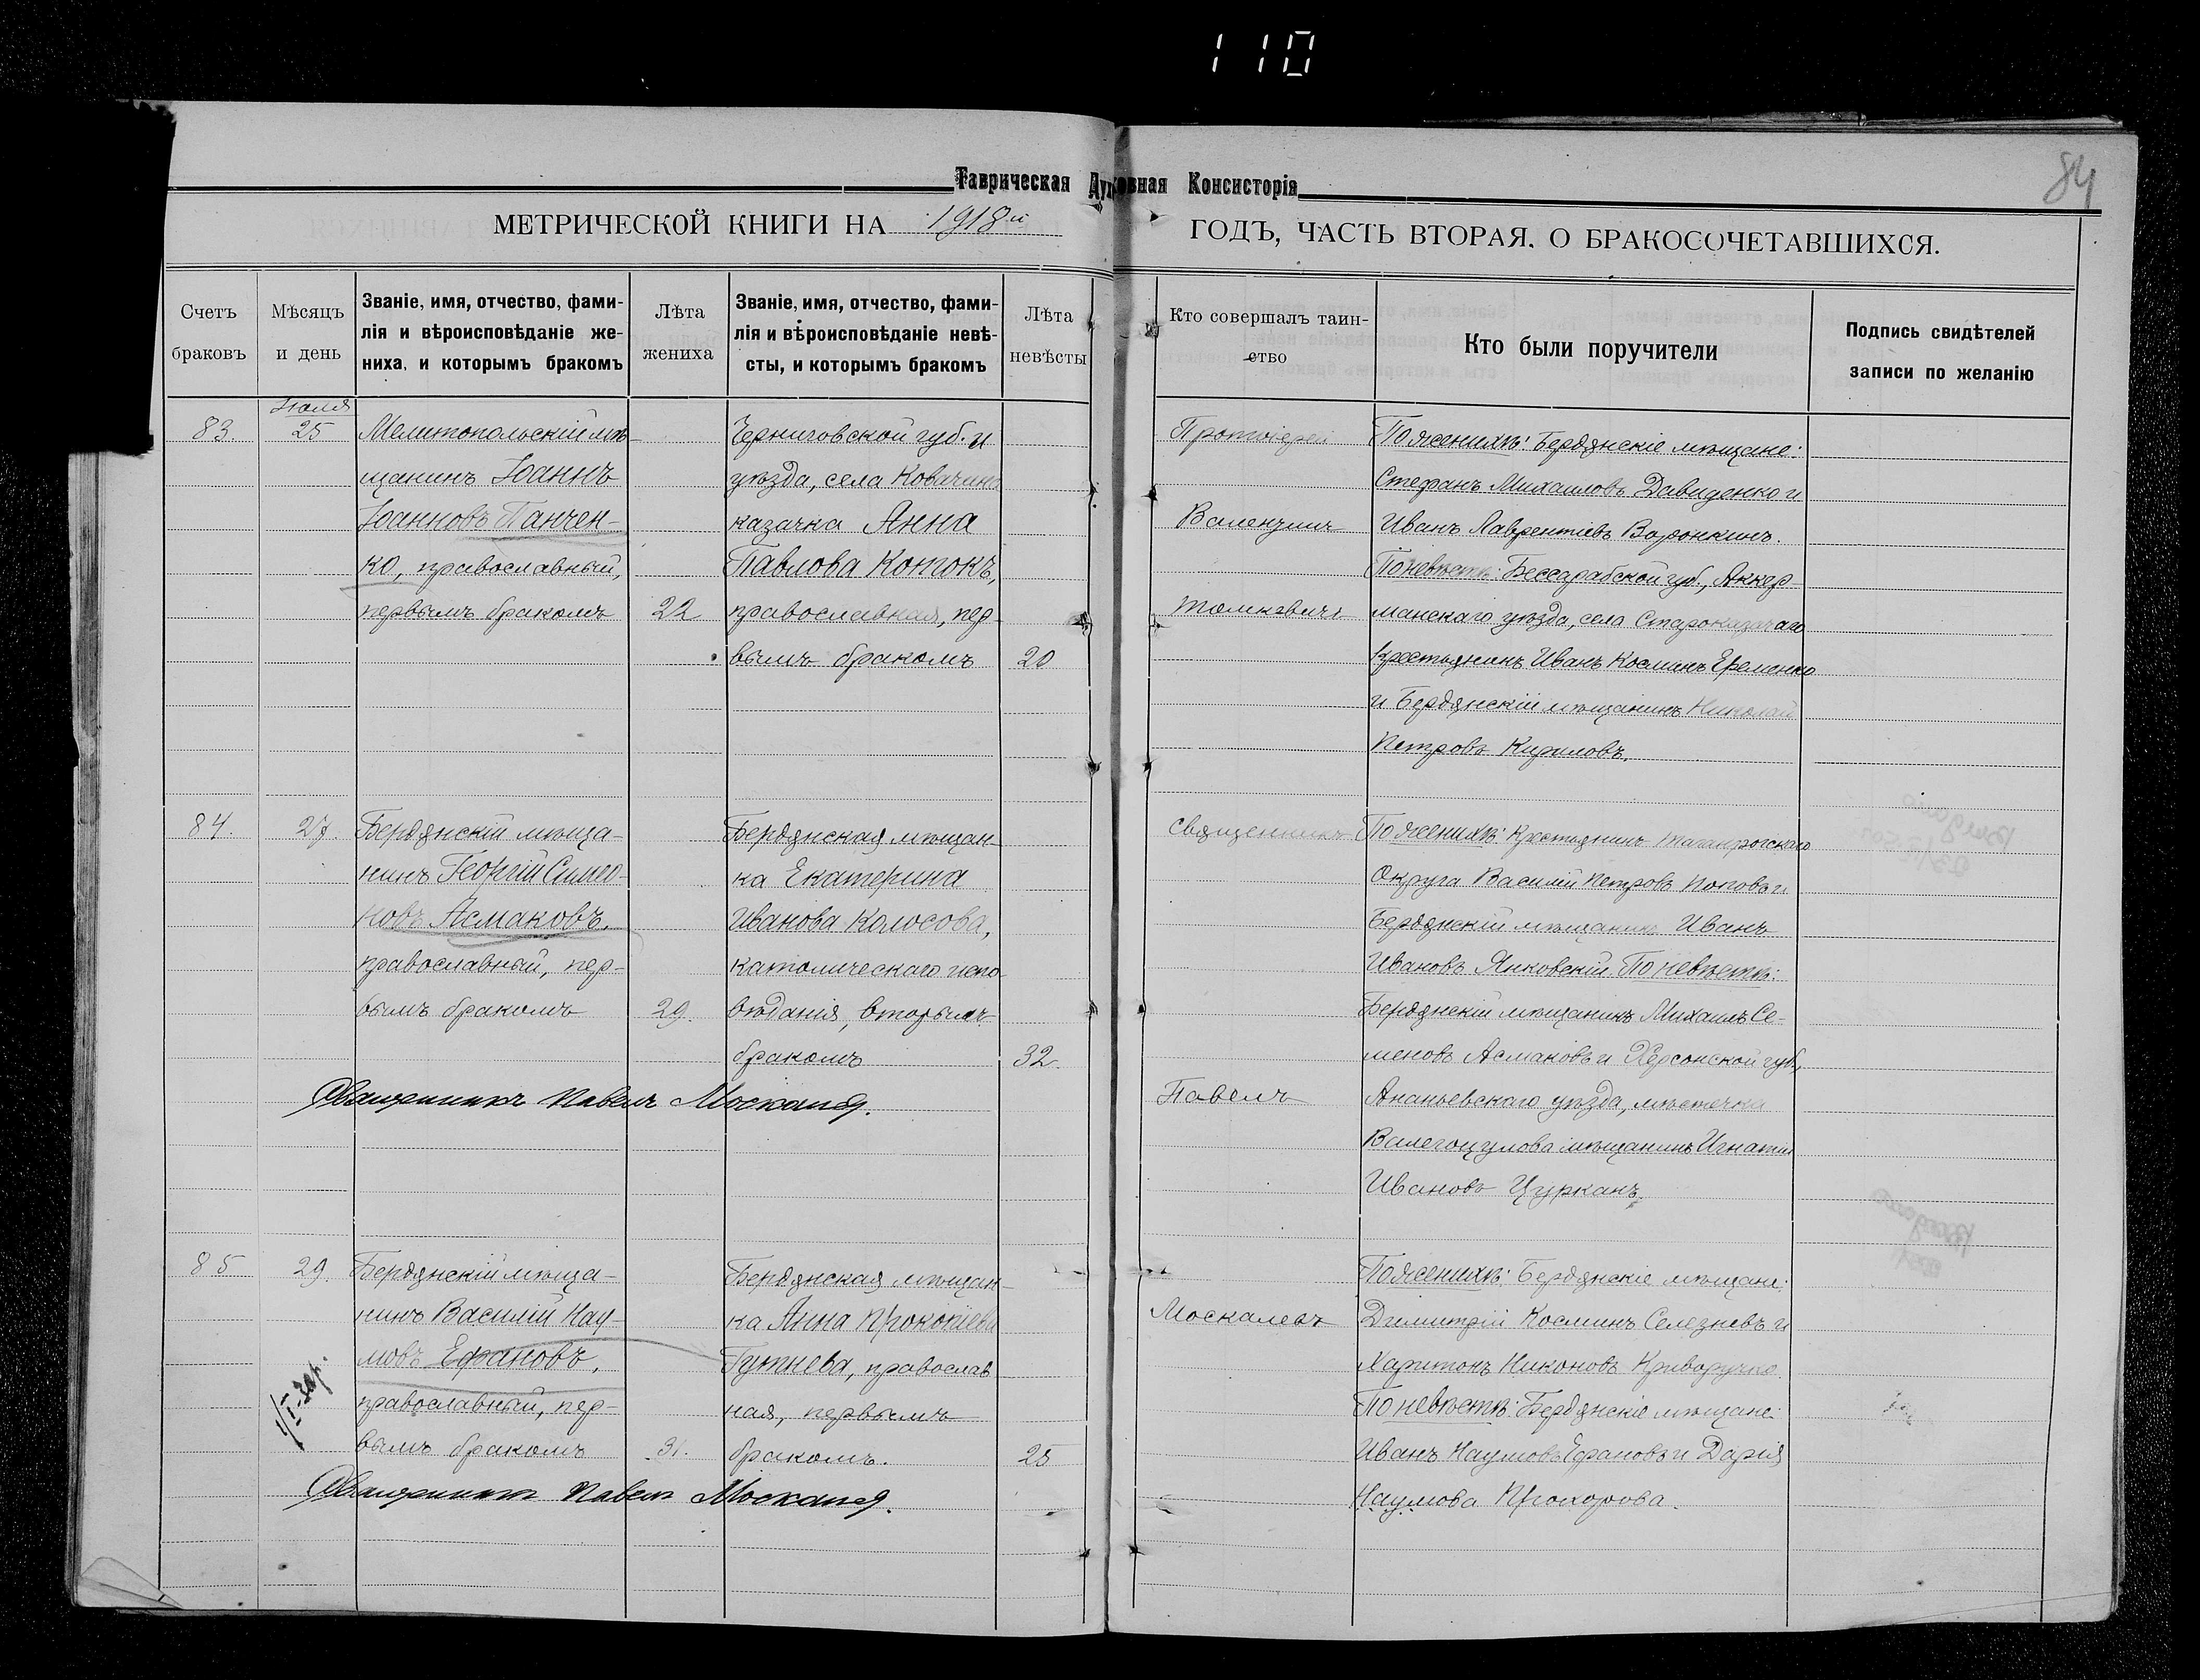 110
84
Таврическая Духовная Консисторія
МЕТРИЧЕСКОЙ КНИГИ НА 1918й ГОДЪ, ЧАСТЬ ВТОРАЯ. О БРАКОСОЧЕТАВШИХСЯ.
Счетъ браковъ
Мѣсяцъ и день
Званіе, имя, отчество, фами-
лія и вѣроисповѣданіе же-
ниха, и которымъ бракомъ
Лѣта жениха
Званіе, имя, отчество, фами-
лія и вѣроисповѣданіе невѣ-
сты, и которымъ бракомъ
Лѣта невѣсты
Кто совершалъ таин-
ство
Кто были поручители
Подпись свидѣтелей
записи по желанію
83.
Іюля
25
Мелитопольскій мѣ-
щанинъ Іоаннъ
Іоанновъ Панчен-
ко, православный,
первымъ бракомъ
22
Черниговской губ. и
уѣзда, села Ковачина
казачка Анна
Павлова Котокъ,
православная, пер-
вымъ бракомъ
20
Протоіерей
Валентинъ
Томкевичъ
По женихѣ: Бердянскіе мѣщане:
Стефанъ Михаиловъ Давиденко и
Иванъ Лаврентіевъ Воронкинъ.
По невѣстѣ: Бессарабской губ., Аккер-
манскаго уѣзда, села Староказачаго
крестьянинъ Иванъ Косминъ Еременко
и Бердянскій мѣщанинъ Николай
Петровъ Кириловъ.
84.
27.
Бердянскій мѣща-
нинъ Георгій Симео-
новъ Асмаковъ,
православный, пер-
вымъ бракомъ
29.
Бердянская мѣщан-
ка Екатерина
Иванова Колосова,
католическаго испо-
вѣданія, вторымъ
бракомъ
32.
Священникъ Павелъ Москалев.
Священникъ
Павелъ
Москалевъ
По женихѣ: Крестьянинъ Таганрогскаго
Округа Василій Петровъ Поповъ и
Бердянскій мѣщанинъ Иванъ
Ивановъ Янковскій. По невѣстѣ:
Бердянскій мѣщанинъ Михаилъ Се-
меновъ Асмаковъ и Херсонской губ.,
Ананьевскаго уѣзда, мѣстечка
Валегоцулова мѣщанинъ Игнатій
Ивановъ Цурканъ.
85
29.
Бердянскій мѣща-
нинъ Василій Нау-
мовъ Ефановъ,
православный, пер-
вымъ бракомъ
31.
Бердянская мѣщан-
ка Анна Прокопіева
православ
ная, первымъ
бракомъ.
25
Священникъ Павелъ Москалев.
По женихѣ: Бердянскіе мѣщане:
Димитрій Косминъ Селезневъ и
Харитонъ Никоновъ Криворучко.
По невѣстѣ: Бердянскіе мѣщане:
Иванъ Наумовъ Ефановъ и Дарія
Наумова Прохорова.